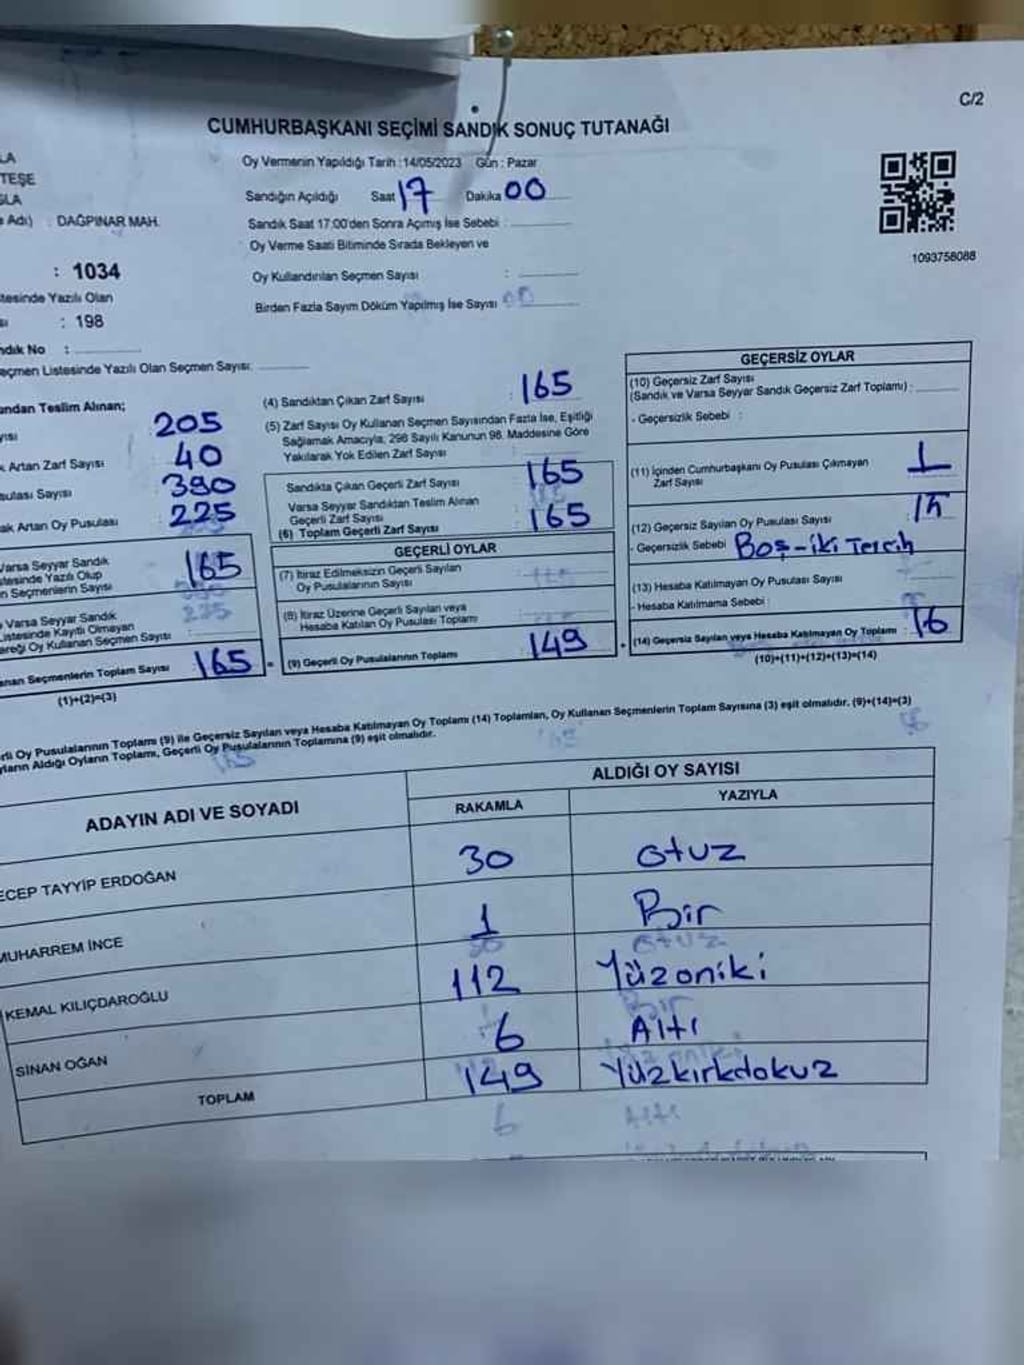 C/2
CUMHURBAŞKANI SEÇİMİ SANDIK SONUÇ TUTANAĞI
LA
TEŞE
ĞLA
Adı) : DAĞPINAR MAH.
: 1034
tesinde Yazılı Olan
sı : 198
ndık No : ............
eçmen Listesinde Yazılı Olan Seçmen Sayısı: ............
Oy Vermenin Yapıldığı Tarih : 14/05/2023 Gün : Pazar
Sandığın Açıldığı Saat 17 Dakika 00
Sandık Saat 17:00'den Sonra Açımış İse Sebebi : ............
Oy Verme Saati Bitiminde Sırada Bekleyen ve
Oy Kullandırılan Seçmen Sayısı : ............
Birden Fazla Sayım Döküm Yapılmış İse Sayısı 00
1093758088
ından Teslim Alınan;
yısı 205
k Artan Zarf Sayısı 40
sulası Sayısı 390
ak Artan Oy Pusulası 225
Varsa Seyyar Sandık
stesinde Yazılı Olup
n Seçmenlerin Sayısı : 165
Varsa Seyyar Sandık
Listesinde Kayıtlı Olmayan
ereği Oy Kullanan Seçmen Sayısı : ............
anan Seçmenlerin Toplam Sayısı : 165
(1)+(2)=(3)
(4) Sandıktan Çıkan Zarf Sayısı : 165
(5) Zarf Sayısı Oy Kullanan Seçmen Sayısından Fazla İse, Eşitliği
Sağlamak Amacıyla; 298 Sayılı Kanunun 98. Maddesine Göre
Yakılarak Yok Edilen Zarf Sayısı : ............
Sandıkta Çıkan Geçerli Zarf Sayısı : 165
Varsa Seyyar Sandıktan Teslim Alınan
Geçerli Zarf Sayısı
(6) Toplam Geçerli Zarf Sayısı : 165
GEÇERLİ OYLAR
(7) İtiraz Edilmeksizin Geçerli Sayılan
Oy Pusulalarının Sayısı
(8) İtiraz Üzerine Geçerli Sayılan veya
Hesaba Katılan Oy Pusulası Toplamı
(9) Geçerli Oy Pusulalarının Toplamı : 149
GEÇERSİZ OYLAR
(10) Geçersiz Zarf Sayısı
(Sandık ve Varsa Seyyar Sandık Geçersiz Zarf Toplamı) : ............
- Geçersizlik Sebebi :
(11) İçinden Cumhurbaşkanı Oy Pusulası Çıkmayan 1
Zarf Sayısı
(12) Geçersiz Sayılan Oy Pusulası Sayısı : 15
- Geçersizlik Sebebi Boş-iki Tercih
(13) Hesaba Katılmayan Oy Pusulası Sayısı
- Hesaba Katılmama Sebebi :
(14) Geçersiz Sayılan veya Hesaba Katılmayan Oy Toplamı : 16
(10)+(11)+(12)+(13)=(14)
rli Oy Pusulalarının Toplamı (9) ile Geçersiz Sayılan veya Hesaba Katılmayan Oy Toplamı (14) Toplamları, Oy Kullanan Seçmenlerin Toplam Sayısına (3) eşit olmalıdır. (9)+(14)=(3)
ların Aldığı Oyların Toplamı, Geçerli Oy Pusulalarının Toplamına (9) eşit olmalıdır.
ADAYIN ADI VE SOYADI
ALDIĞI OY SAYISI
RAKAMLA YAZIYLA
ECEP TAYYİP ERDOĞAN 30 otuz
MUHARREM İNCE 1 Bir
KEMAL KILIÇDAROĞLU 112 Yüzoniki
SİNAN OĞAN 6 Altı
TOPLAM 149 Yüzkırkdokuz